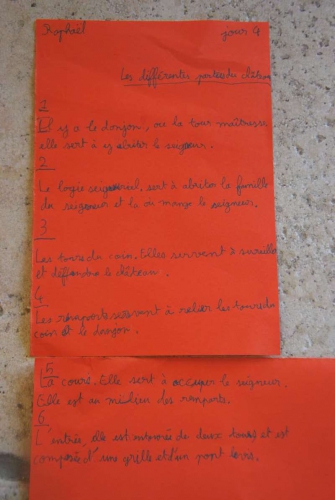 Raphaël jours 9
Les différentes parties du château
1
Il y a le donjon, ou la tour maîtresse
elle sert à y abriter le seigneur.
2
Le logis seigneurial, sert à abriter la famille
du seigneur et là où mange le seigneur.
3
Les tours du coin. Elles servent à surveiller
et défendre le château.
4
Les servent à relier les tours du
coin et le donjon.
5
La cours. Elle sert à occuper le seigneur.
Elle est au milieu des remparts.
6
L'entrée, elle est entourée de deux tours et est
composée d'une grille et d'un pont levis.